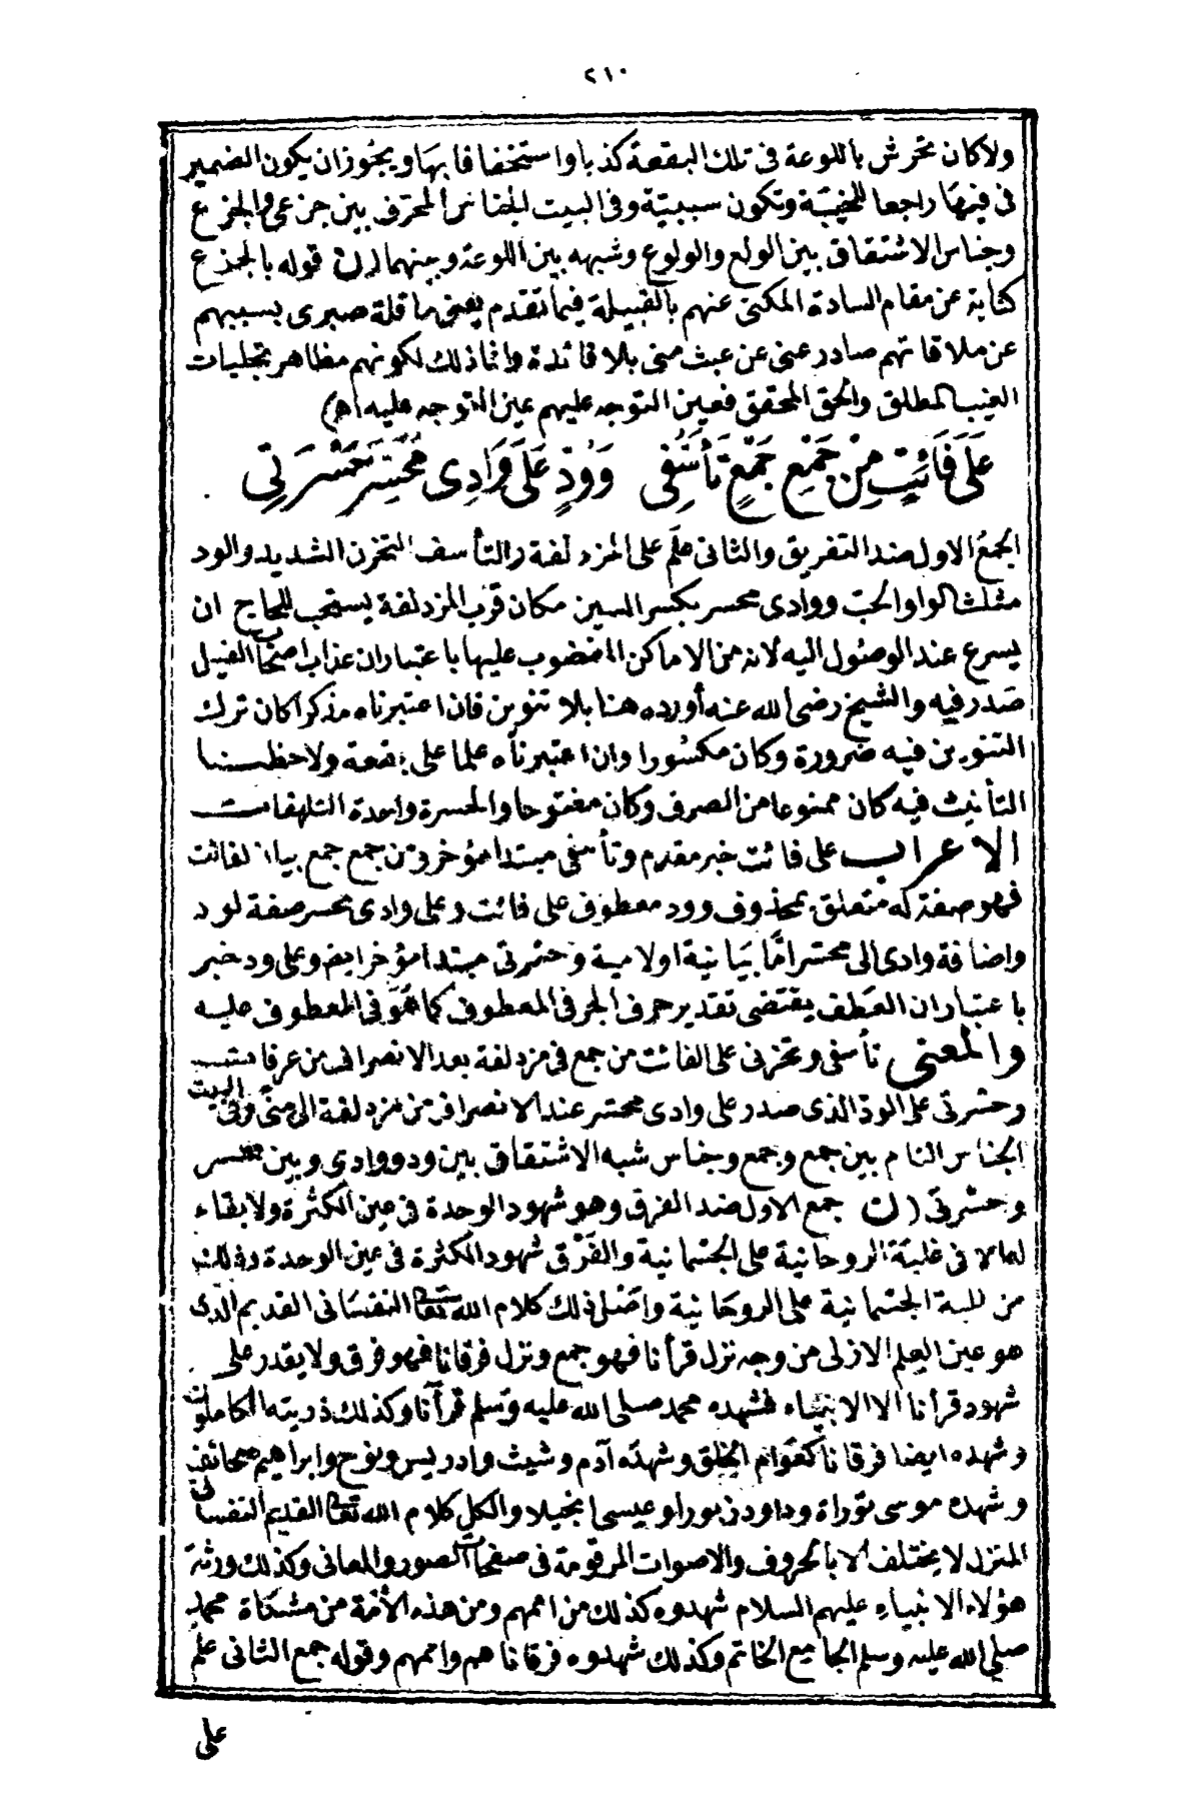 ٢١٠
ولا كان تحرش باللوعة في تلك البقعة كذبا واستخفافا بها ويجوز ان يكون الضمير
في فيها راجعا للخيبة وتكون سببية وفي البيت الجناس المحرف بين جزعي والجزع
وجناس الاشتقاق بين الولع والولوع وشبهه بين اللوعة وبينهما (ن قوله بالجذع
كناية عن مقام السادة المكنى عنهم بالقبيلة فيما تقدم يعني ما قلة صبري بسببهم
عن ملاقاتهم صادر عني عن عبث مني بلا فائدة وانما ذلك لكونهم مظاهر تجليات
الغيب المطلق والحق المحقق فعين التوجه عليهم عين التوجه عليه اه)
عَلَى فَائِتٍ مِنْ جَمْعِ جَمْعٍ تَأَسُّفِي وَوُدٍّ عَلَى وَادِي مُحَسِّرَ حَسْرَتِي
الجمع الاول ضد التفريق والثاني علم على المزدلفة والتأسف التحزن الشديد والود
مثلث الواو الحب ووادي محسر بكسر السين مكان قرب المزدلفة يستحب للحاج ان
يسرع عند الوصول اليه لانه من الاماكن المغضوب عليها باعتبار ان عذاب اصحاب الفيل
صدر فيه والشيخ رضي الله عنه أورده هنا بلا تنوين فان اعتبرناه مذكرا كان ترك
التنوين فيه ضرورة وكان مكسورا وان اعتبرناه علما على بقعة ولاحظنا
التأنيث فيه كان ممنوعا من الصرف وكان مفتوحا والحسرة واحدة التلهفات
الاعراب على فائت خبر مقدم وتأسفي مبتدا مؤخر ومن جمع جمع بيان لفائت
فهو صفة له متعلق بمحذوف وود معطوف على فائت وعلى وادي محسر صفة لود
واضافة وادي الى محسر امّا بيانية او لامية وحسرتي مبتدا مؤخر ايضا وعلى ود خبر
باعتبار ان العطف يقتضي تقدير حرف الجر في المعطوف كما هو في المعطوف عليه
والمعنى تأسفي وتحزني على الفائت من جمع في مزدلفة بعد الانصراف من عرفات
وحسرتي على الود الذي صدر على وادي محسر عند الانصراف من مزدلفة الى منى وفي البيت
الجناس التام بين جمع وجمع وجناس شبه الاشتقاق بين ود ووادي وبين محسر
وحسرتي (ن جمع الاول ضد الفرق وهو شهود الوحدة في عين الكثرة ولا بقاء
لها الا في غلبة الروحانية على الجسمانية والفرق شهود الكثرة في عين الوحدة وذلك
من غلبة الجسمانية على الروحانية واصل ذلك كلام الله تعالى النفساني القديم الذي
هو عين العلم الازلي من وجه نزل قرأنا فهو جمع ونزل فرقانا فهو فرق ولا يقدر على
شهود قرأنا الا الانبياء فشهده محمد صلى الله عليه وسلم قرآنا وكذلك ذريته الكاملون
وشهده ايضا فرقانا كعوام الخلق وشهده آدم وشيث وادريس ونوح وابراهيم صحائف
وشهده موسى توراة وداود زبورا وعيسى انجيلا والكل كلام الله تعالى القديم النفساني
المنزل لا يختلف الا بالحروف والاصوات المرقومة في صفحات الصور والمعاني وكذلك ورثة
هؤلاء الانبياء عليهم السلام شهدوه كذلك من اممهم ومن هذه الأمة من مشكاة محمد
صلى الله عليه وسلم الجامع الخاتم وكذلك شهدوه فرقانا هم واممهم وقوله جمع الثاني علم
على